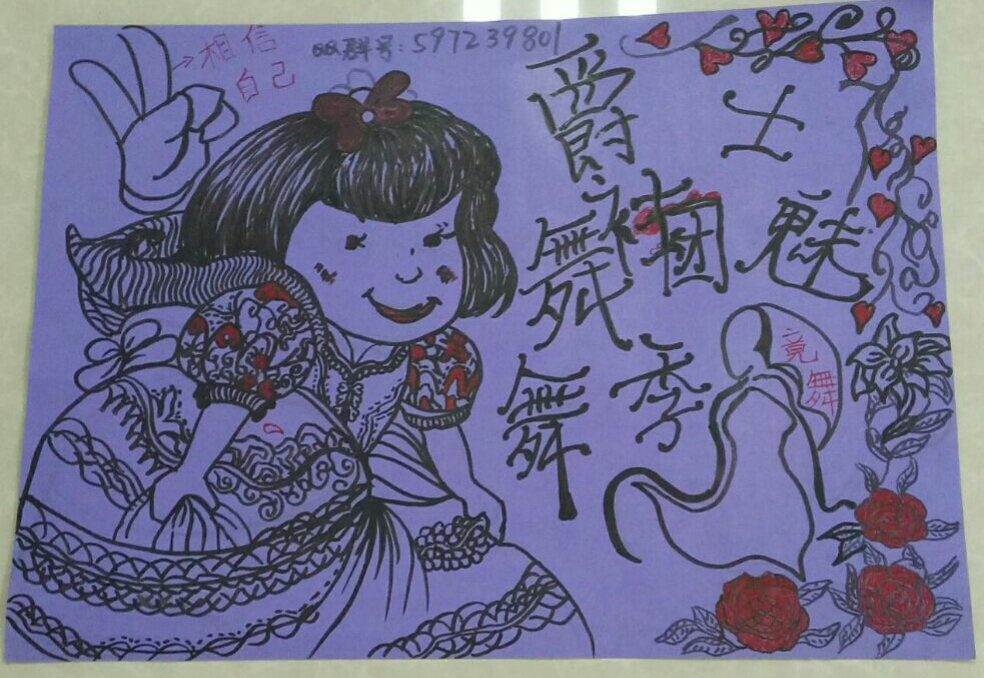 相信
自己
QQ群号:597239801
爵士
舞 魅
舞季
竟舞